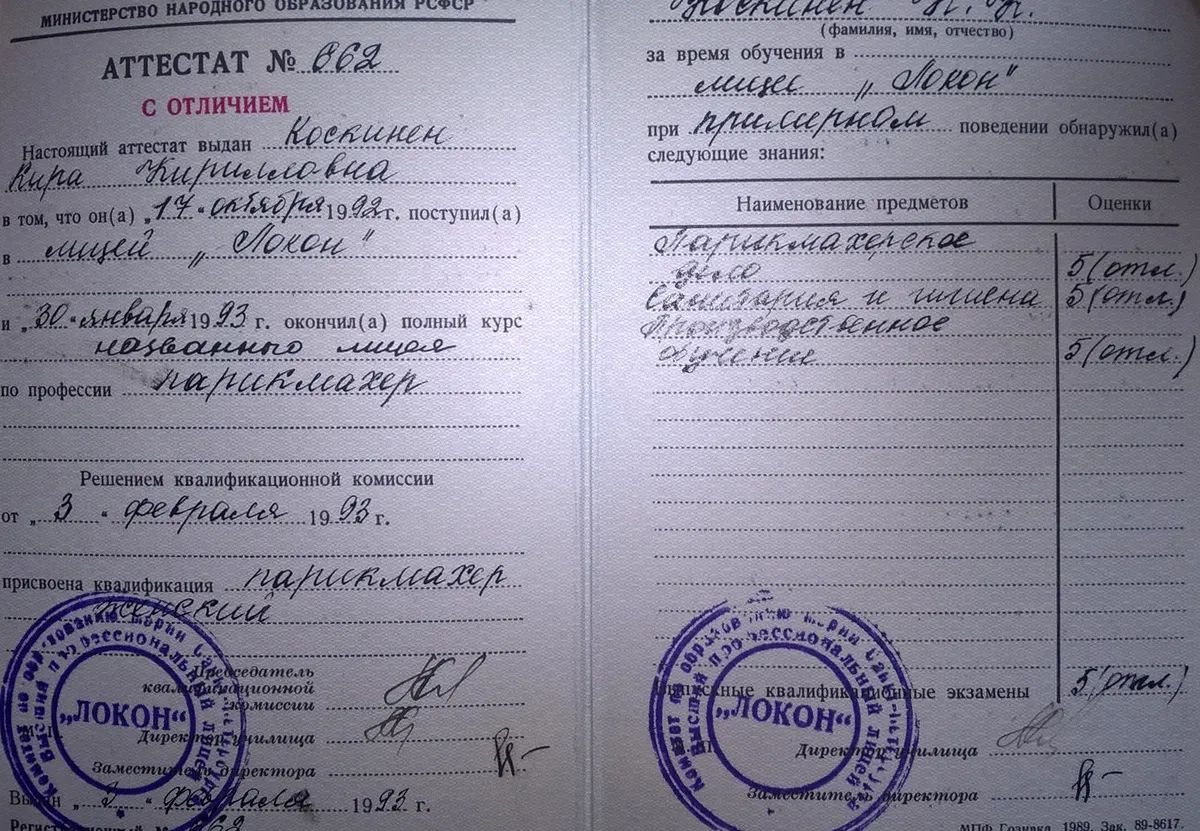 МИНИСТЕРСТВО НАРОДНОГО ОБРАЗОВАНИЯ РСФСР
АТТЕСТАТ № 662
С ОТЛИЧИЕМ
Настоящий аттестат выдан Коскинен
Кира Кирилловна
в том, что он(а) „17“ октября 1992 г. поступил(а)
в лицей „Локон“
и „30“ января 1993 г. окончил(а) полный курс
названного лицея
по профессии парикмахер
Решением квалификационной комиссии
от „3“ февраля 1993 г.
присвоена квалификация парикмахер
женский
Председатель
квалификационной
комиссии
Директор училища
Заместитель директора
Выдан „3“ февраля 1993 г.
Регистрационный № 662
Комитет по образованию мэрии Санкт-Петербурга
Высший профессиональный лицей
„ЛОКОН“
Коскинен К. К.
(фамилия, имя, отчество)
за время обучения в
лицее „Локон“
при примерном поведении обнаружил(а)
следующие знания:
Наименование предметов Оценки
Парикмахерское
дело 5 (отл.)
Санитария и гигиена 5 (отл.)
Производственное
обучение 5 (отл.)
Выпускные квалификационные экзамены 5 (отл.)
Директор училища
Заместитель директора
Комитет по образованию мэрии Санкт-Петербурга
Высший профессиональный лицей
„ЛОКОН“
МПФ Гознака. 1989. Зак. 89-8617.